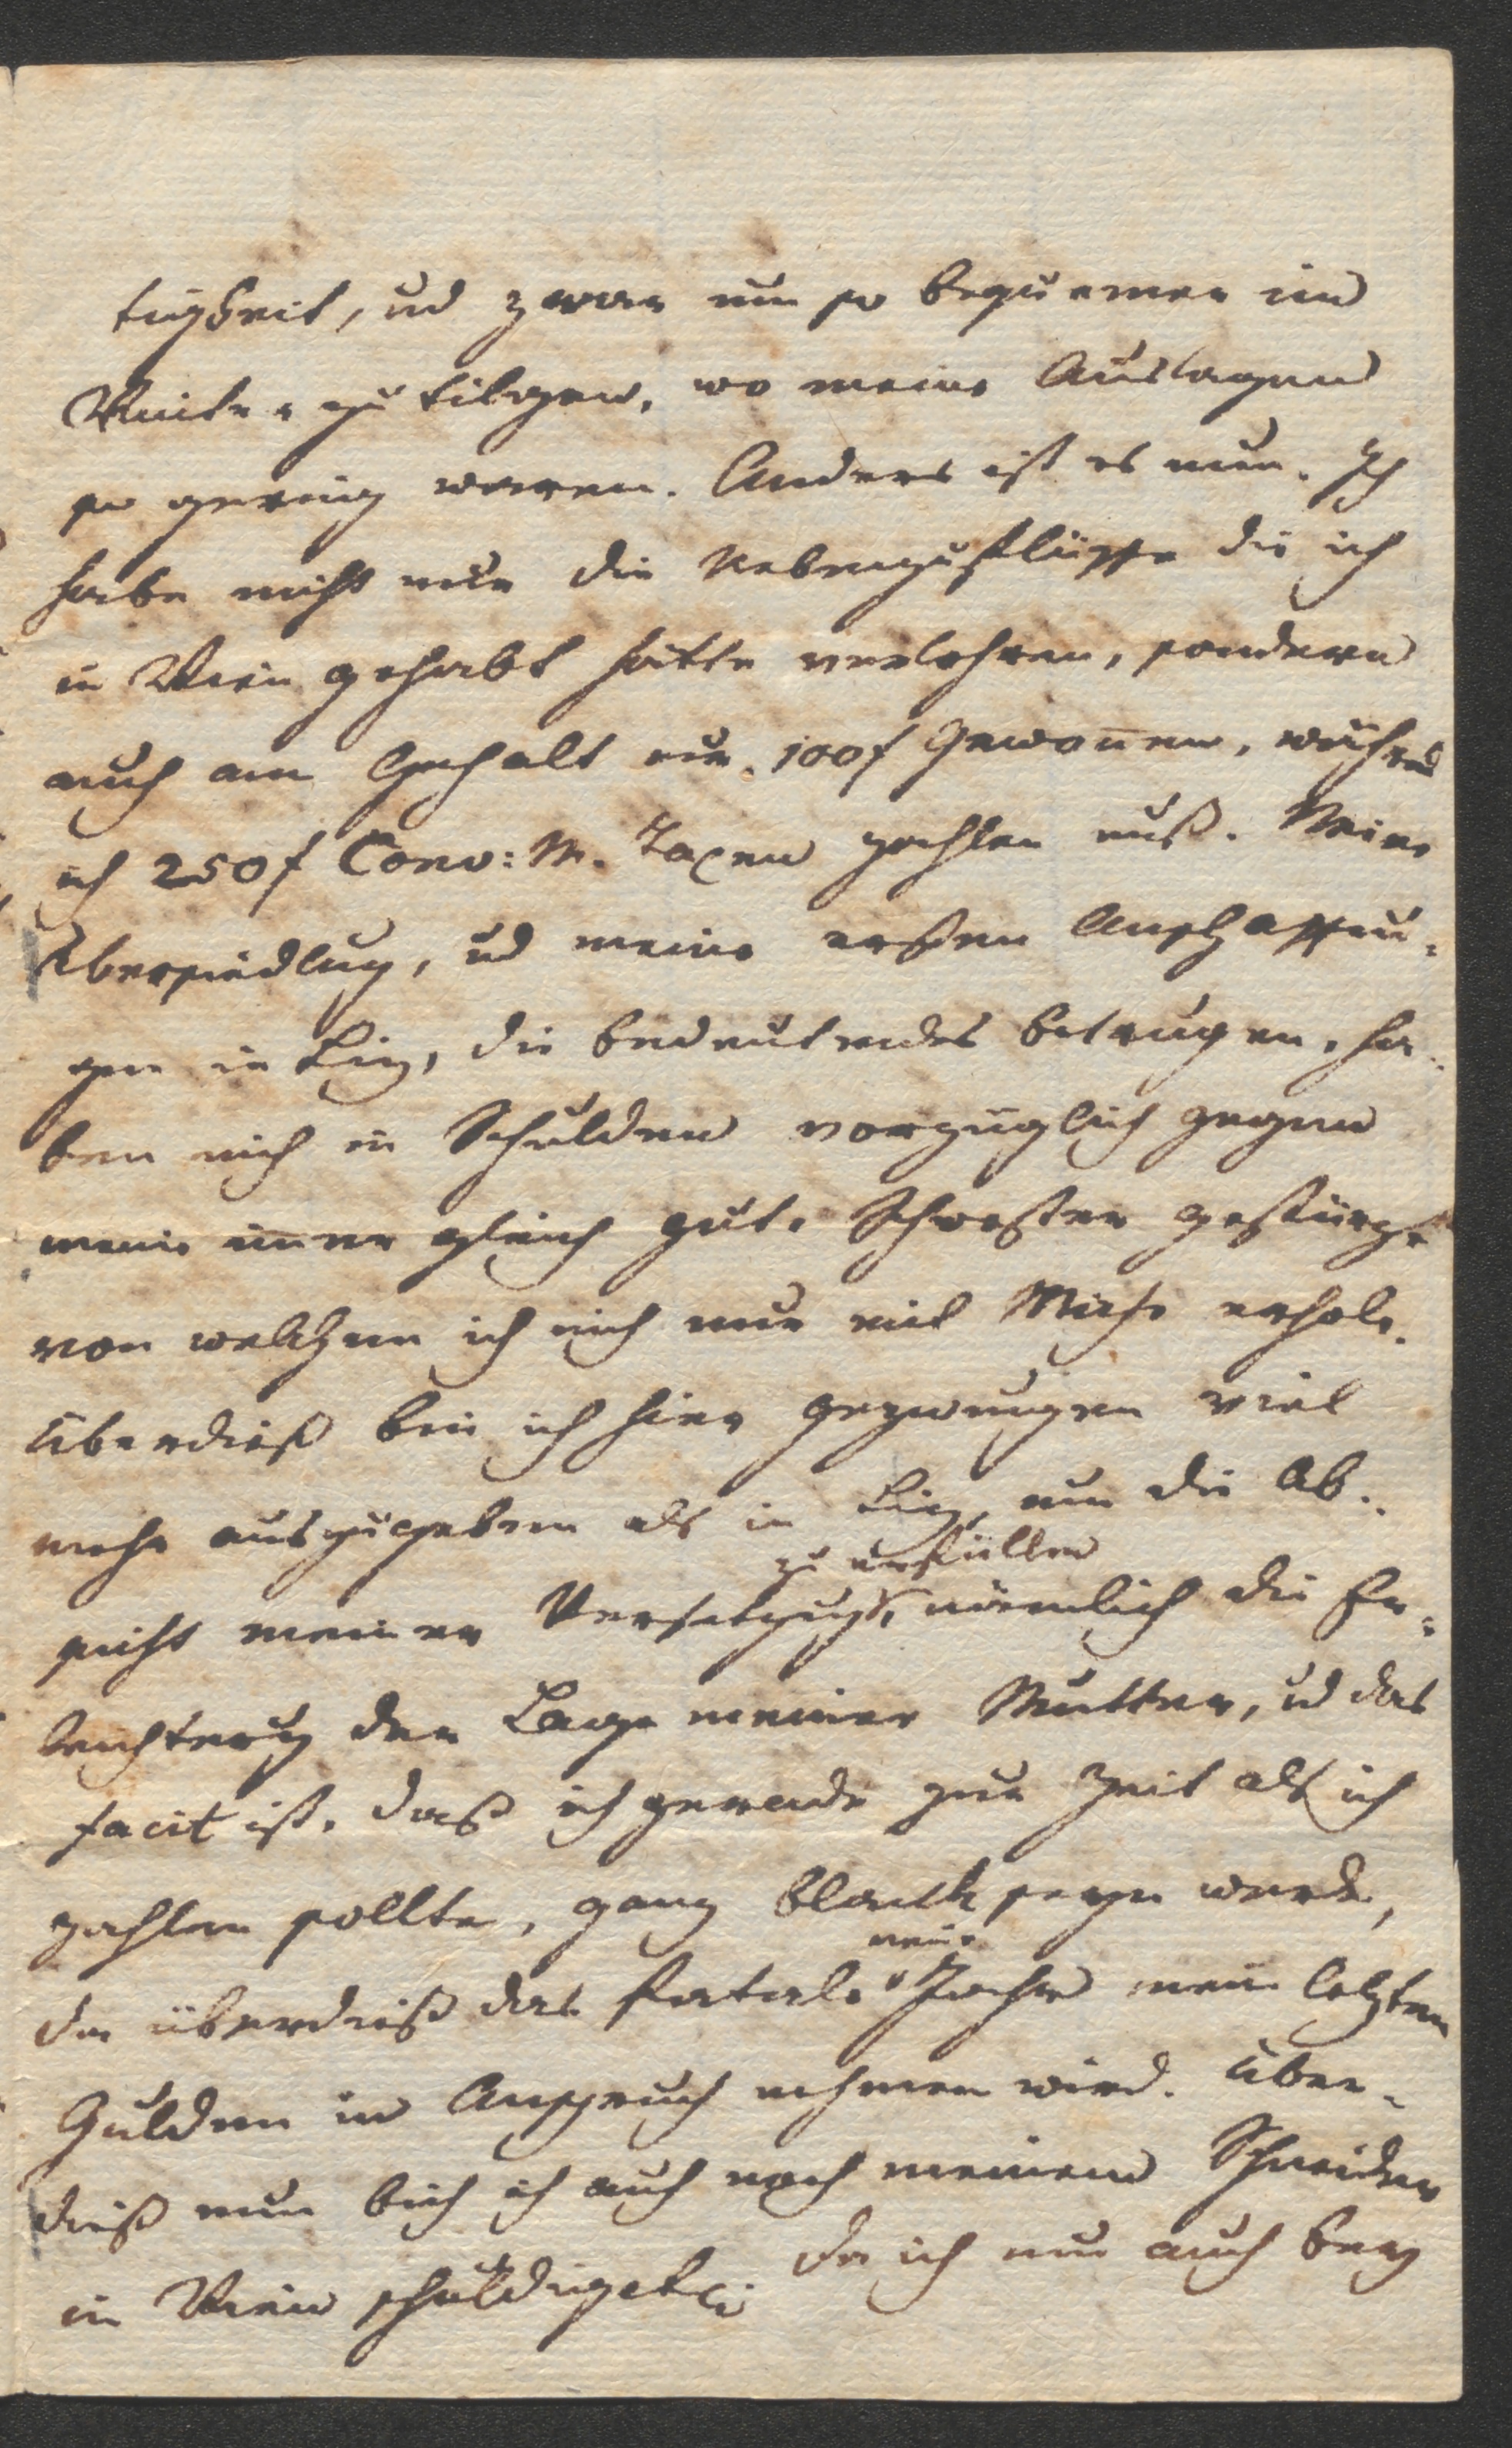 tigkeit, ud zwar um so bequemer im
Winter zu tilgen, wo meine Auslagen
so gering waren. Anders ist es nun. Ich
habe nicht nur die Nebenzuflüsse die ich
in Wien gehabt hätte verlohren, sondern
auch am Gehalt nur 100f Gewonnen, währed
ich 250f Conv: M. Taxen zahlen muß. Meine
Übersiedlug, ud meine ersten Anschaffun-
gen in Linz, die bedeutendes betrugen, ha-
ben mich in Schulden vorzüglich gegen
meine immer gleich gute Schwester gestürzt
von welchen ich mich nur mit Mühe erhole.
Überdieß bin ich hier gezwungen viel
mehr auszugeben als in Linz, um die Ab-
zu erfüllen
sicht meiner Versetzug, nämlich die Er-
leichterug der Lage meiner Mutter, ud das
facit ist, daß ich gerade zur Zeit als ich
zahlen sollte, ganz blank seyn werde,
neue
da überdieß das fatale Jahr mein letzten
Gulden in Anspruch nehmen wird. Über-
dieß nun bin ich auch noch meinem Schneider
in Wien schuldig etc. Da ich nun auch bey